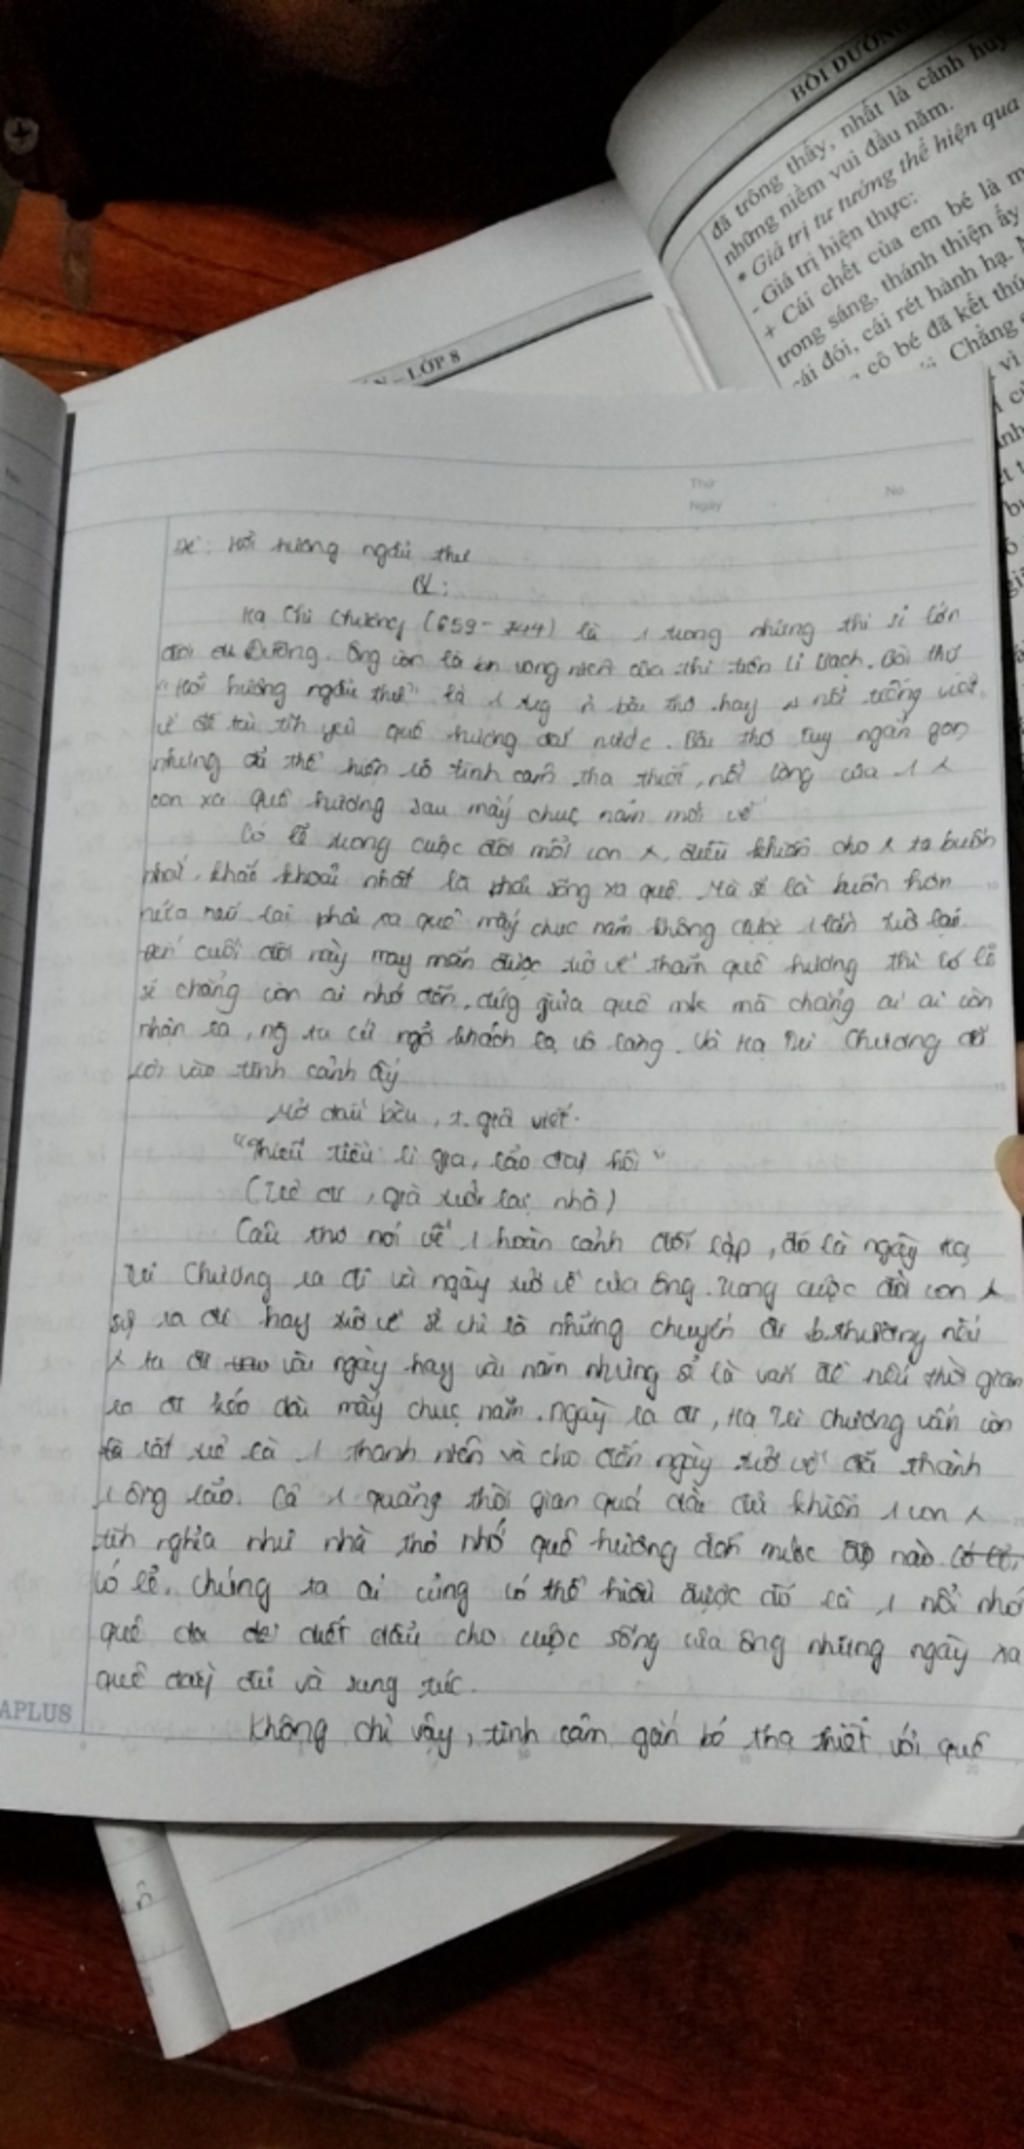 BỒI DƯỠNG
đã trông thấy, nhất là cảnh huy
những niềm vui đầu năm.
* Giá trị tư tưởng thể hiện qua
- Giá trị hiện thực:
+ Cái chết của em bé là m
trong sáng, thánh thiện ấy
cái đói, cái rét hành hạ.
cô bé đã kết thú
Chẳng
vì
N - LỚP 8
Thứ
Ngày
No.
Đề: Hồi hương ngẫu thư
BL:
Hạ Chi Chương (659-744) là 1 trong những thi sĩ lớn
đời Đường. Ông còn là bạn vong niên của thi tiên Lí Bạch. Bài thơ
"Hồi hương ngẫu thư" là 1 trg n bài thơ hay nổi tiếng viết
về đề tài tình yêu quê hương đất nước. Bài thơ tuy ngắn gọn
nhưng đã thể hiện rõ tình cảm tha thiết, nỗi lòng của 1
con xa quê hương sau mấy chục năm mới về
Có lẽ trong cuộc đời mỗi con, điều khiến cho ta buồn
nhất, khắc khoải nhất là phải sống xa quê. Mà sẽ là buồn hơn
nữa nếu lại phải xa quê mấy chục năm không được 1 lần trở lại.
Đến cuối đời này may mắn được trở về thăm quê hương thì có lẽ
sẽ chẳng còn ai nhớ đến, đứng giữa quê mk mà chẳng ai ai còn
nhận ra, ng ta cứ ngỡ khách lạ vô làng. Và Hạ Tri Chương đã
rơi vào tình cảnh ấy
Mở đầu bài, t. giả viết:
"Thiếu tiểu li gia, lão đại hồi"
(Trẻ đi, già trở lại nhà)
Câu thơ nói về 1 hoàn cảnh đối lập, đó là ngày Hạ
Tri Chương ra đi và ngày trở về của ông. Trong cuộc đời con
sự ra đi hay trở về sẽ chỉ là những chuyến đi b.thường nếu
ta đi vài ngày hay vài năm nhưng sẽ là vấn đề nếu thời gian
ra đi kéo dài mấy chục năm. Ngày ra đi, Hạ Tri Chương vẫn còn
rất trẻ là 1 thanh niên và cho đến ngày trở về đã thành
1 ông lão. Cả 1 quãng thời gian quá dài đủ khiến 1 con
tình nghĩa như nhà thơ nhớ quê hương đến mức nào
có lẽ, chúng ta ai cũng có thể hiểu được đó là 1 nỗi nhớ
quê da diết dẫu cho cuộc sống của ông những ngày xa
quê đầy đủ và sung túc.
APLUS
Không chỉ vậy, tình cảm gắn bó tha thiết với quê